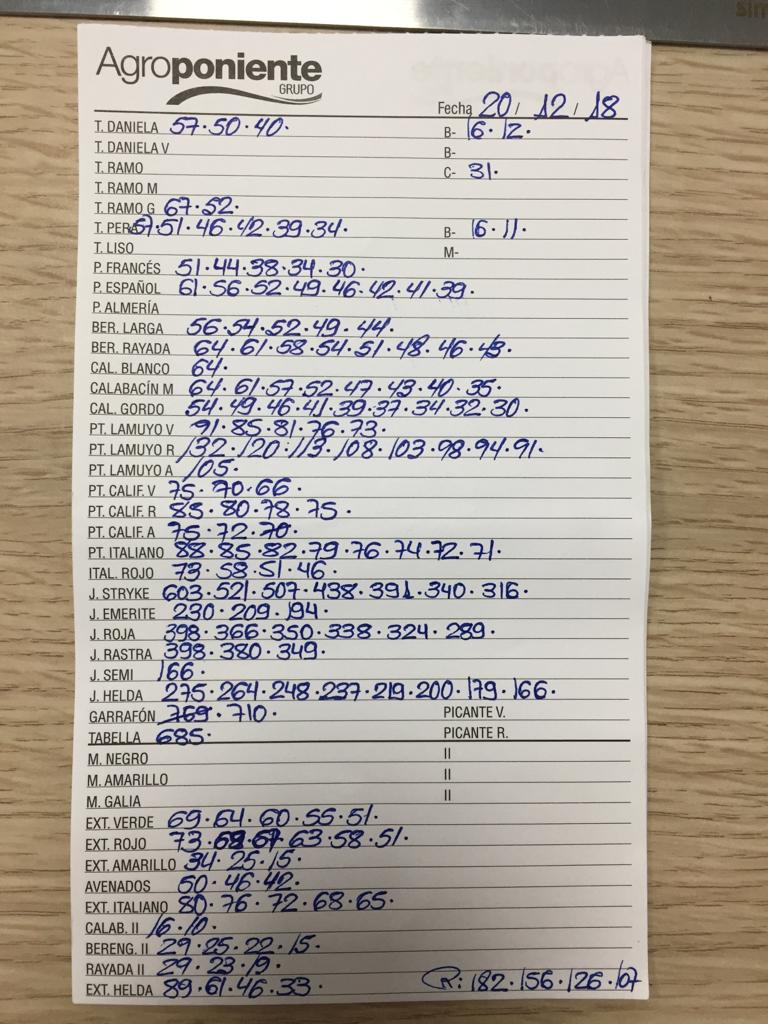 Agroponiente
GRUPO
Fecha 20 / 12 / 18
T. DANIELA 57·50·40· B- 16·12·
T. DANIELA V B-
T. RAMO C- 31·
T. RAMO M
T. RAMO G 67·52·
T. PERA 57·51·46·42·39·34· B- 16·11·
T. LISO M-
P. FRANCÉS 51·44·38·34·30·
P. ESPAÑOL 61·56·52·49·46·42·41·39·
P. ALMERÍA
BER. LARGA 56·54·52·49·44·
BER. RAYADA 64·61·58·54·51·48·46·43·
CAL. BLANCO 64·
CALABACÍN M 64·61·57·52·47·43·40·35·
CAL. GORDO 54·49·46·41·39·37·34·32·30·
PT. LAMUYO V 91·85·81·76·73·
PT. LAMUYO R 132·120·113·108·103·98·94·91·
PT. LAMUYO A 105·
PT. CALIF. V 75·70·66·
PT. CALIF. R 85·80·78·75·
PT. CALIF. A 75·72·70·
PT. ITALIANO 88·85·82·79·76·74·72·71·
ITAL. ROJO 73·58·51·46·
J. STRYKE 603·521·507·438·391·340·316·
J. EMERITE 230·209·194·
J. ROJA 398·366·350·338·324·289·
J. RASTRA 398·380·349·
J. SEMI 166·
J. HELDA 275·264·248·237·219·200·179·166·
GARRAFÓN 769·710· PICANTE V.
TABELLA 685· PICANTE R.
M. NEGRO II
M. AMARILLO II
M. GALIA II
EXT. VERDE 69·64·60·55·51·
EXT. ROJO 73·68·67·63·58·51·
EXT. AMARILLO 34·25·15·
AVENADOS 50·46·42·
EXT. ITALIANO 80·76·72·68·65·
CALAB. II 16·10·
BERENG. II 29·25·22·15·
RAYADA II 29·23·19·
EXT. HELDA 89·61·46·33· R: 182·156·126·107